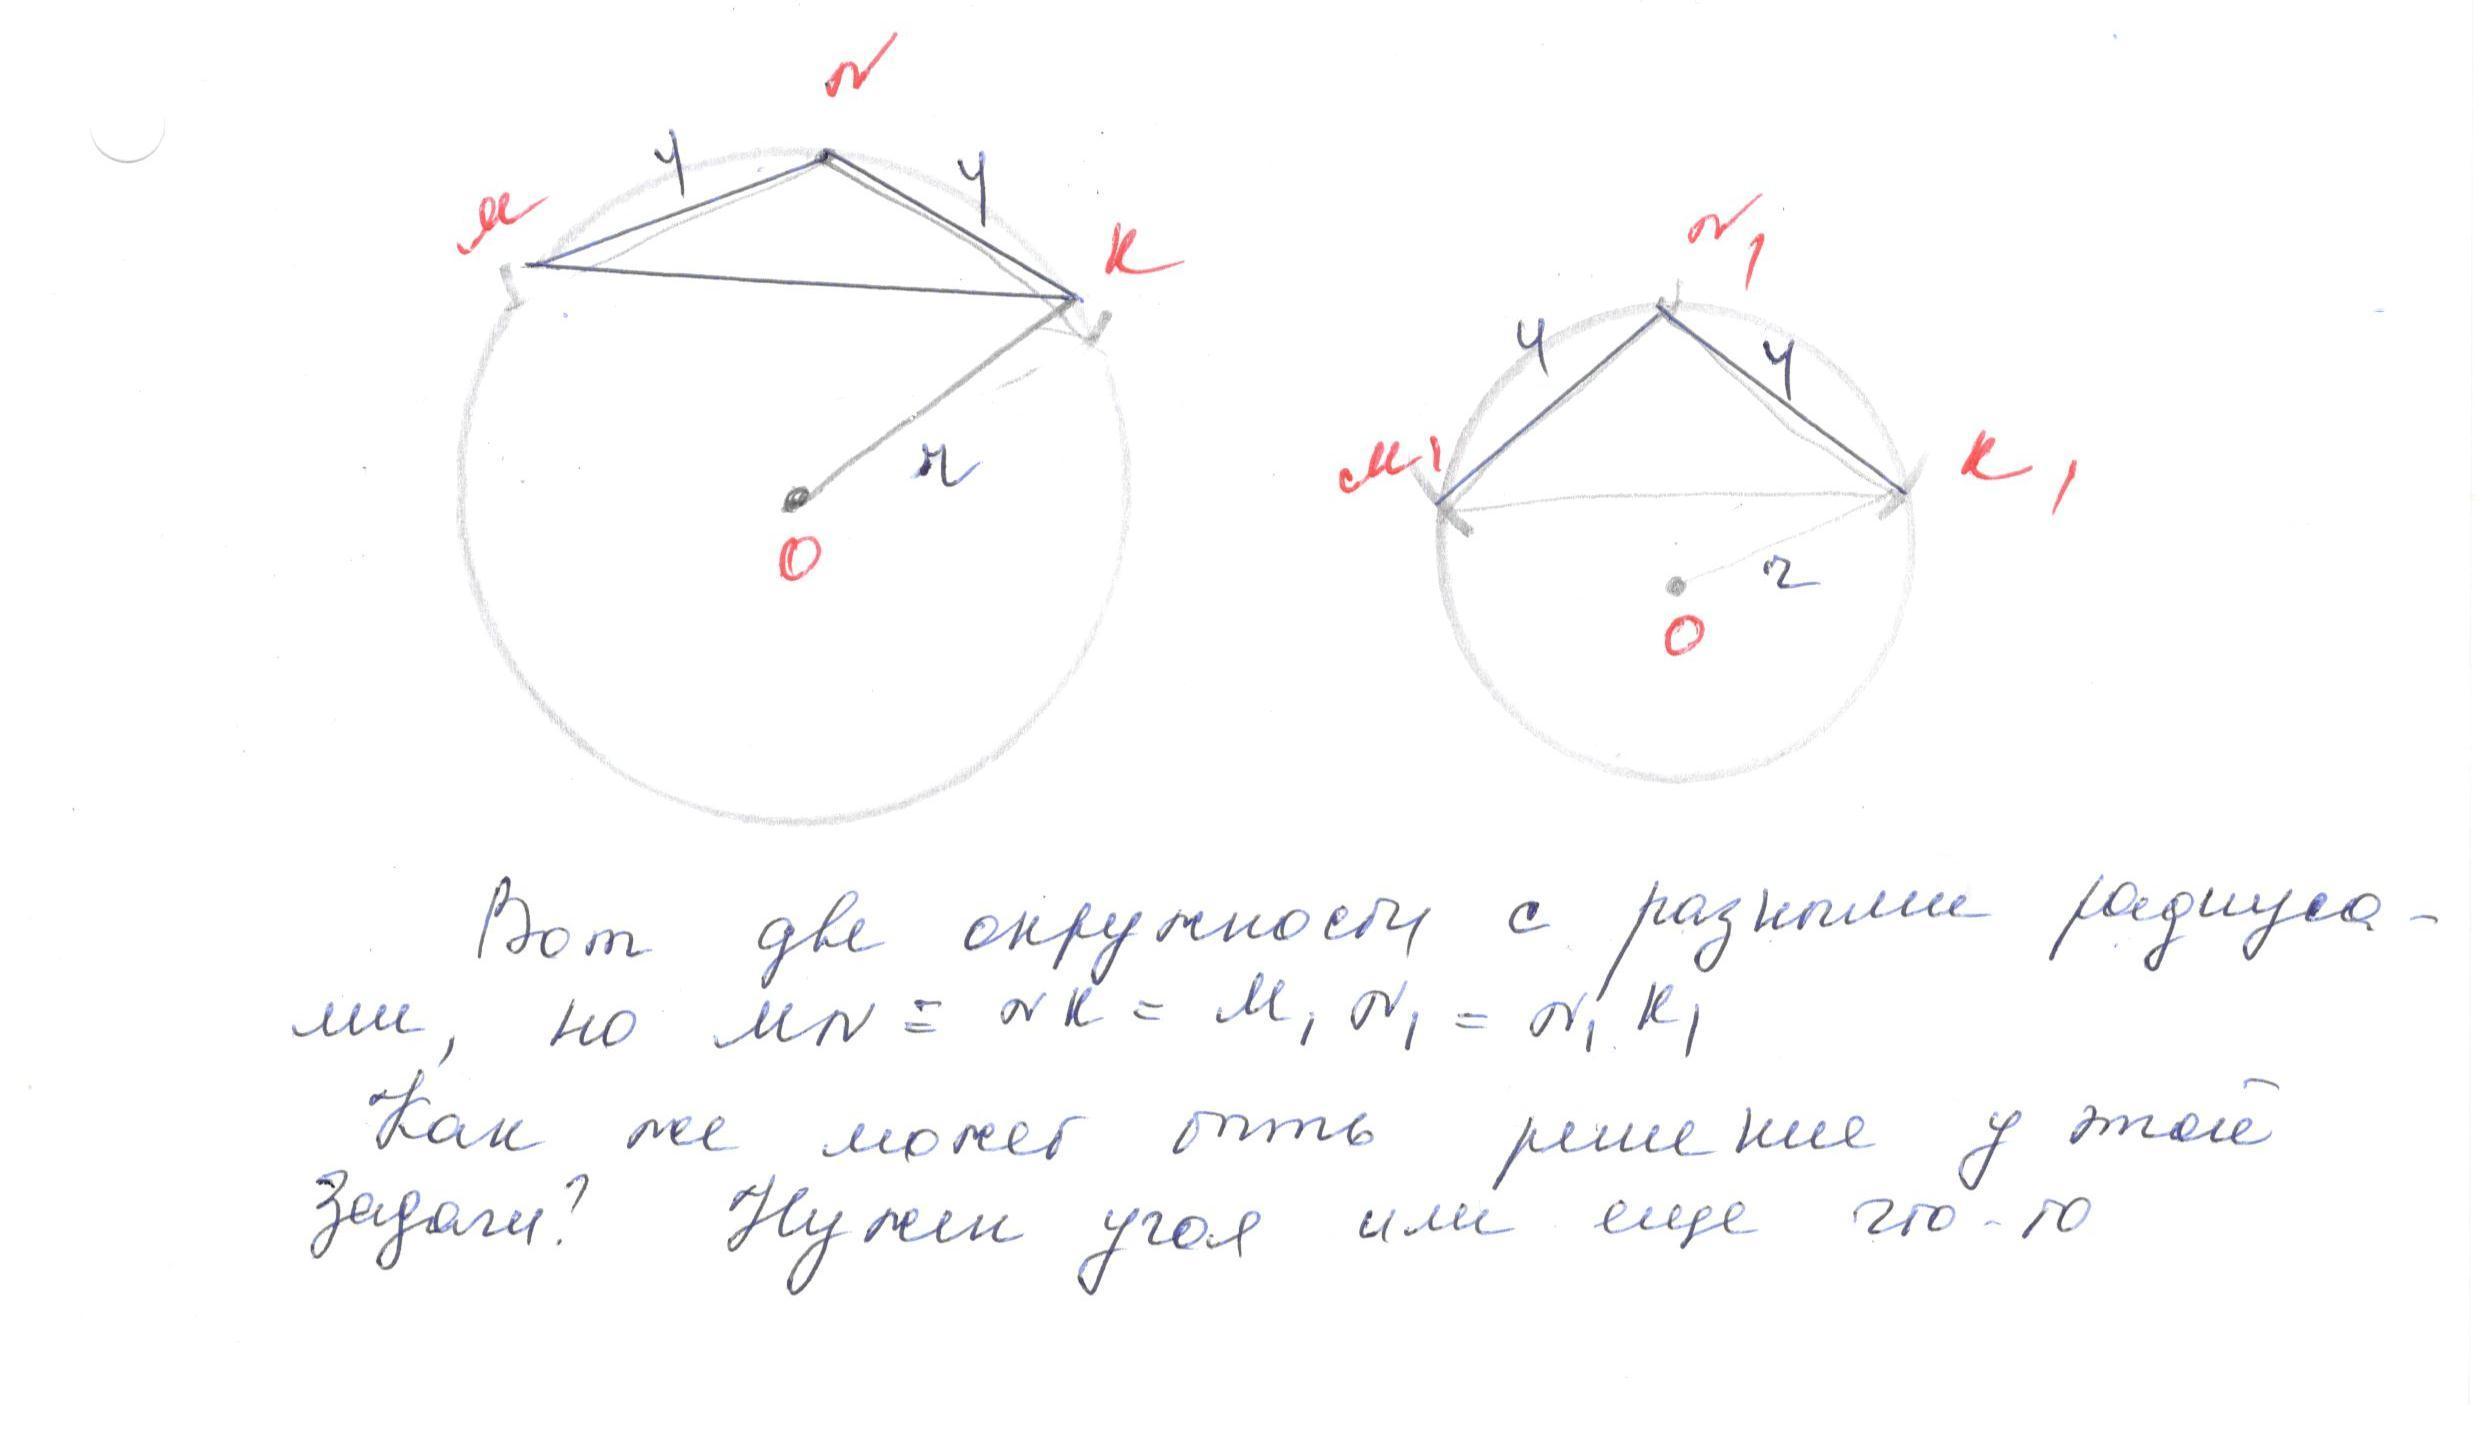 N
4
4
M
K
r
O
N1
4
4
M1
K1
r
O
Вот две окружности с разными радиуса-
ми, но MN = NK = M1 N1 = N1 K1
Как же может быть решение у этой
задачи? Нужен угол или еще что-то